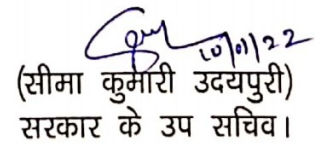 10/01/22
(सीमा कुमारी उदयपुरी)
सरकार के उप सचिव।